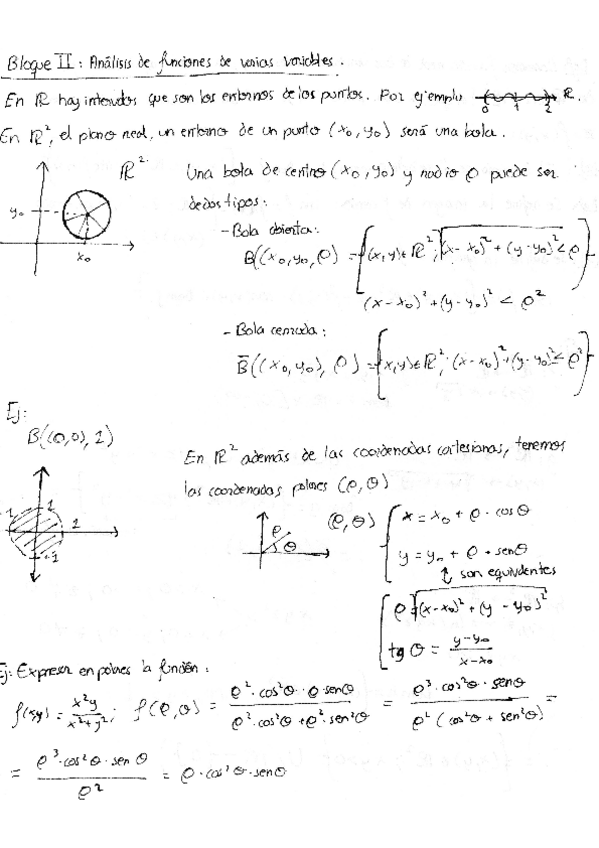 Bloque II: Análisis de funciones de varias variables.
En ℝ hay intervalos que son los entornos de los puntos. Por ejemplo 0 1 2 ℝ.
En ℝ², el plano real, un entorno de un punto (x₀, y₀) será una bola.
ℝ²
y₀
x₀
Una bola de centro (x₀, y₀) y radio ρ puede ser
de dos tipos:
- Bola abierta:
B((x₀, y₀, ρ) = {(x,y) ∈ ℝ²; √(x-x₀)² + (y-y₀)² < ρ}
(x-x₀)² + (y-y₀)² < ρ²
- Bola cerrada:
B̅((x₀, y₀), ρ) = {x,y) ∈ ℝ²; (x-x₀)² + (y-y₀)² ≤ ρ²}
Ej:
B((0,0), 1)
-1 1 1 -1
En ℝ² además de las coordenadas cartesianas, tenemos
las coordenadas polares (ρ, θ)
ρ θ
(ρ, θ) { x = x₀ + ρ · cos θ
y = y₀ + ρ · sen θ
↕ son equivalentes
{ ρ = √(x-x₀)² + (y-y₀)²
tg θ = (y-y₀)/(x-x₀)
Ej: Expresar en polares la función:
f(x,y) = x²y/(x²+y²); f(ρ, θ) = (ρ² · cos²θ · ρ senθ)/(ρ² · cos²θ + ρ² · sen²θ) = (ρ³ · cos²θ · senθ)/(ρ² (cos²θ + sen²θ)) =
= (ρ³ · cos²θ · sen θ)/ρ² = ρ · cos²θ · senθ